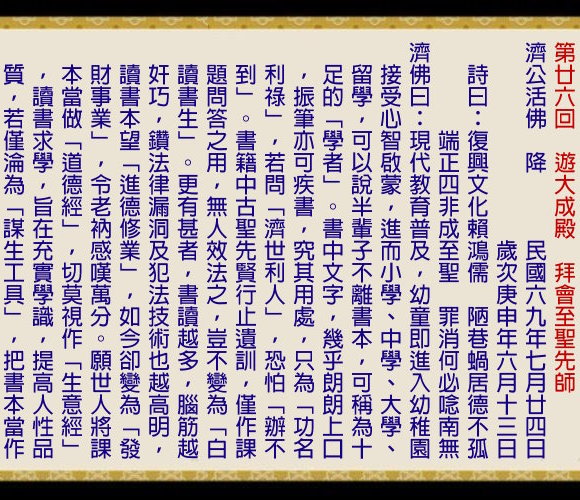 第廿六回　遊大成殿　拜會至聖先師
濟公活佛　降　　民國六九年七月廿四日
歲次庚申年六月十三日
詩曰：復興文化賴鴻儒　陋巷蝸居德不孤
端正四非成至聖　罪消何必唸南無
濟佛曰：現代教育普及，幼童即進入幼稚園
接受心智啟蒙，進而小學、中學、大學、
留學，可以說半輩子不離書本，可稱為十
足的「學者」。書中文字，幾乎朗朗上口
，振筆亦可疾書，究其用處，只為「功名
利祿」，若問「濟世利人」，恐怕「辦不
到」。書籍中古聖先賢行止遺訓，僅作課
題問答之用，無人效法之，豈不變為「白
讀書生」。更有甚者，書讀越多，腦筋越
奸巧，鑽法律漏洞及犯法技術也越高明，
讀書本望「進德修業」，如今卻變為「發
財事業」，令老衲感嘆萬分。願世人將課
本當做「道德經」，切莫視作「生意經」
，讀書求學，旨在充實學識，提高人性品
質，若僅淪為「謀生工具」，把書本當作